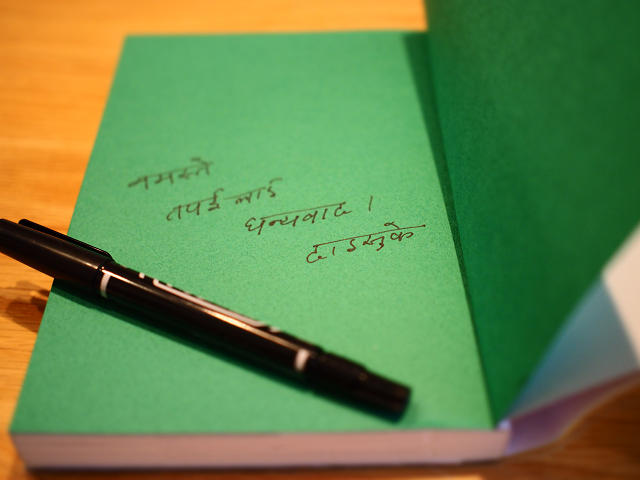 नमस्ते
तपाई लाई
धन्यवाद ।
दाइसुके